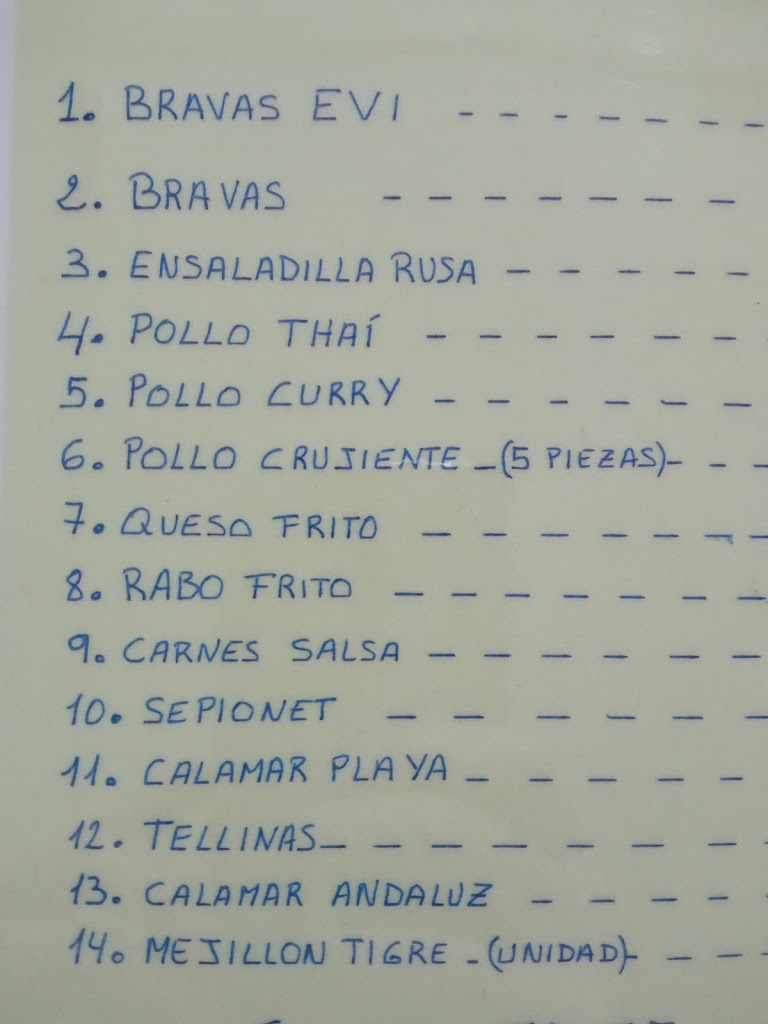 1. BRAVAS EVI - - - - - - -
2. BRAVAS - - - - - - -
3. ENSALADILLA RUSA - - - - -
4. POLLO THAÍ - - - - - - -
5. POLLO CURRY - - - - - -
6. POLLO CRUJIENTE - (5 PIEZAS) - - -
7. QUESO FRITO - - - - - - -
8. RABO FRITO - - - - - - -
9. CARNES SALSA - - - - - -
10. SEPIONET - - - - - -
11. CALAMAR PLAYA - - - - -
12. TELLINAS - - - - - - - -
13. CALAMAR ANDALUZ - - - - -
14. MEJILLON TIGRE - (UNIDAD) - - - -